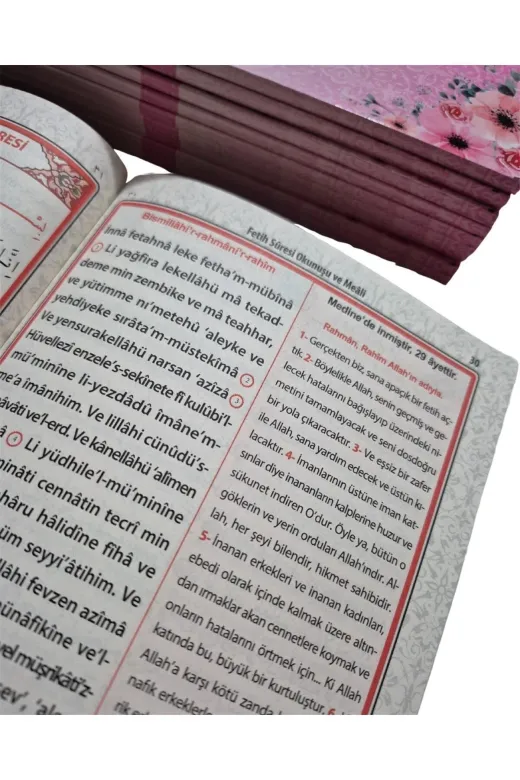 RESİ
Fetih Sûresi Okunuşu ve Meâli
30
Bismillâhi'r-rahmâni'r-rahîm
İnnâ fetahnâ leke fetha'm-mübînâ
1 Li yağfira lekellâhü mâ tekad-
deme min zembike ve mâ teahhar,
ve yütimme nı'metehû 'aleyke ve
yehdiyeke sırâta'm-müstekîmâ 2
Ve yensurakellâhü narsan azîzâ 3
Hüvellezî enzele's-sekînete fî kulûbi'l-
mü'minîne li-yezdâdû îmâne'm-
a îmânihim. Ve lillâhi cünûdü's-
âvâti ve'l-erd. Ve kânellâhü 'alîmen
â 4 Li yüdhile'l-mü'minîne
minâti cennâtin tecrî min
hâru hâlidîne fîhâ ve
üm seyyi'âtihim. Ve
llâhi fevzen azîmâ
ünâfikîne ve'l-
vel müşrikâti'z-
ev', 'ale
Medîne'de inmiştir, 29 âyettir.
Rahmân, Rahîm Allah'ın adıyla.
1- Gerçekten biz, sana apaçık bir fetih aç-
tık. 2- Böylelikle Allah, senin geçmiş ve ge-
lecek hatalarını bağışlayıp üzerindeki ni-
metini tamamlayacak ve seni dosdoğru
bir yola çıkaracaktır. 3- Ve eşsiz bir zafer
ile Allah, sana yardım edecek ve üstün kı-
lacaktır. 4- İmanlarının üstüne iman kat-
sınlar diye inananların kalplerine huzur ve
sükunet indiren O'dur. Öyle ya, bütün o
göklerin ve yerin orduları Allah'ındır. Al-
lah, her şeyi bilendir, hikmet sahibidir.
5- İnanan erkekleri ve inanan kadınları,
ebedi olarak içinde kalmak üzere altın-
dan ırmaklar akan cennetlere koymak ve
onların hatalarını örtmek için... Ki Allah
katında bu, büyük bir kurtuluştur. 6-
Allah'a karşı kötü zanda
nafık erkekler
rik erk